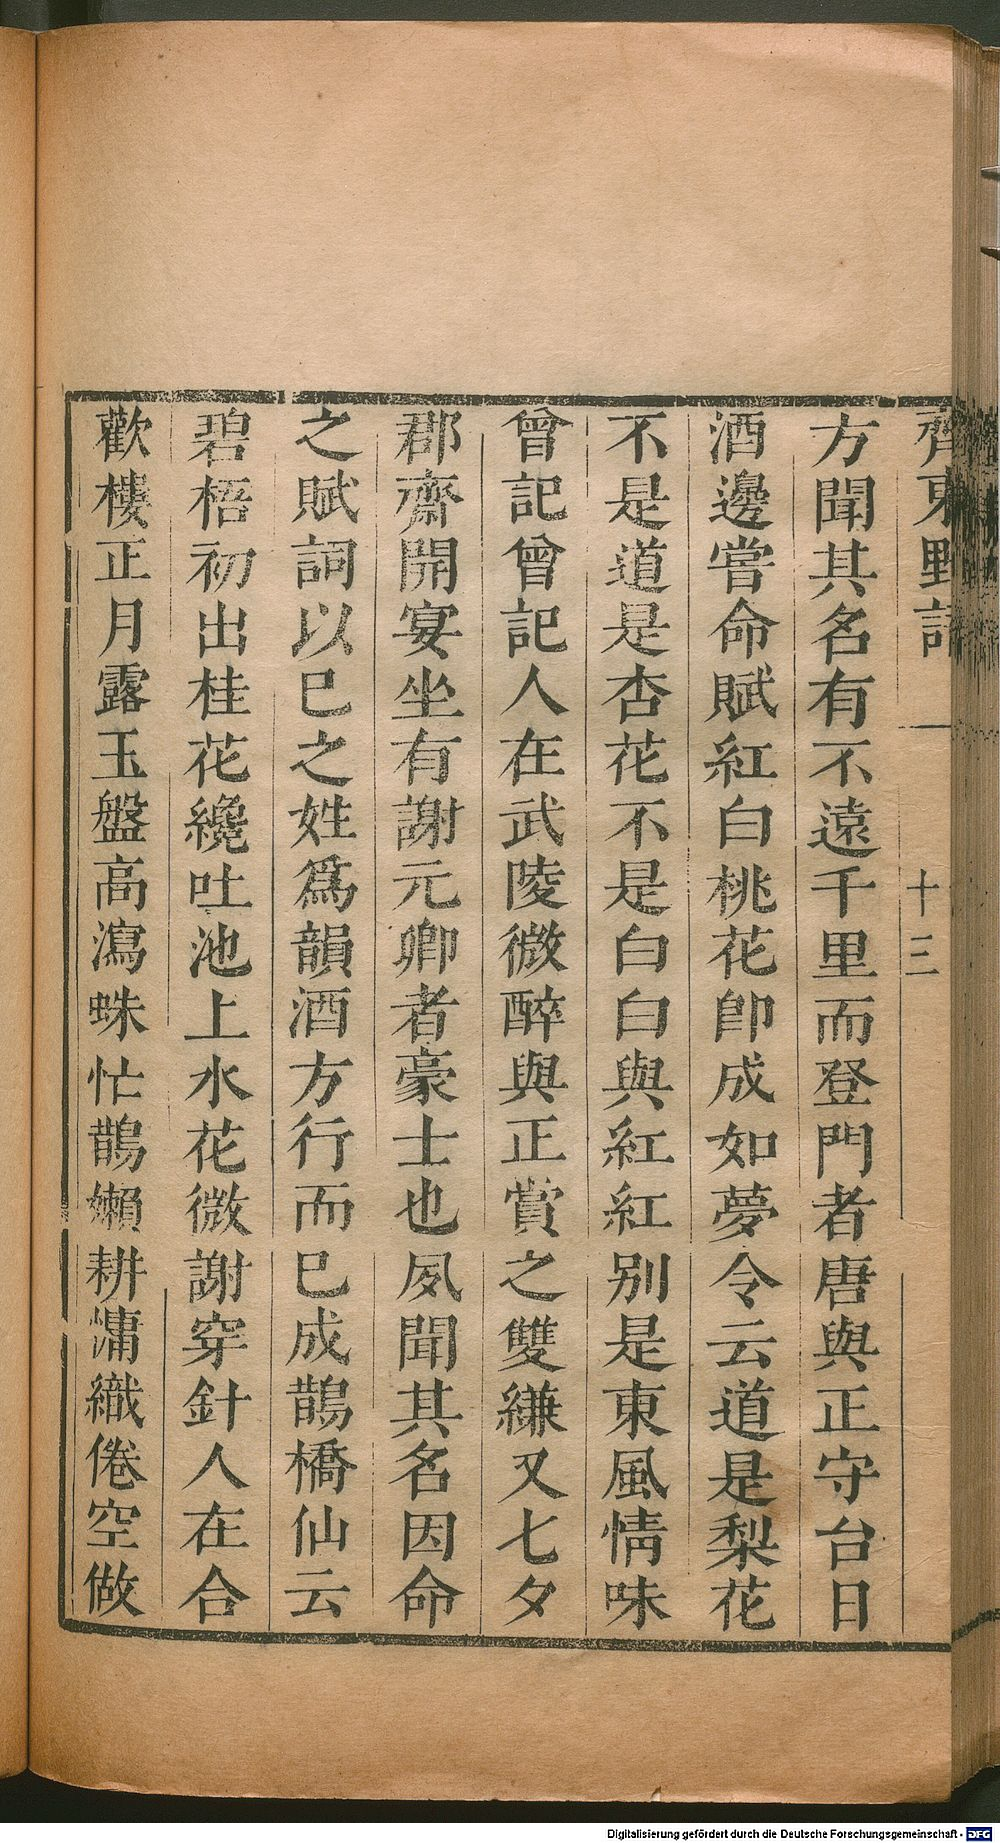 齊東野語 十三
方聞其名有不遠千里而登門者唐與正守台日
酒邊嘗命賦紅白桃花卽成如夢令云道是梨花
不是道是杏花不是白白與紅紅別是東風情味
曾記曾記人在武陵微醉與正賞之雙縑又七夕
郡齋開宴坐有謝元卿者豪士也夙聞其名因命
之賦詞以巳之姓爲韻酒方行而巳成鵲橋仙云
碧梧初出桂花纔吐池上水花微謝穿針人在合
歡樓正月露玉盤高瀉蛛忙鵲嬾耕慵織倦空做
Digitalisierung gefördert durch die Deutsche Forschungsgemeinschaft - DFG